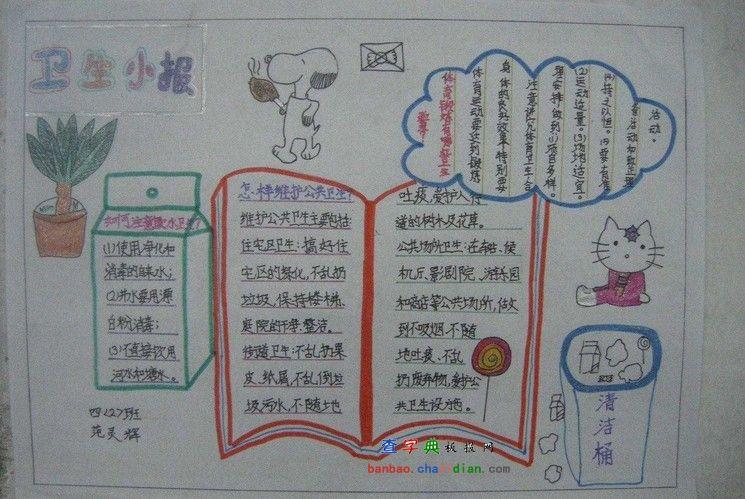 卫生小报
如何注意饮水卫生?
(1)使用净化和
消毒的自来水;
(2)井水要用漂
白粉消毒;
(3)不直接饮用
河水和塘水。
四(2)班
怎样维护公共卫生?
维护公共卫生主要包括
住宅区卫生:搞好住
宅区的绿化,不乱扔
垃圾,保持楼梯、
庭院的干净、整洁。
街道卫生:不乱扔果
皮、纸屑,不乱倒垃
圾污水,不随地
吐痰,爱护人行
道的树木及花草。
公共场所卫生:在车站、候
机厅、影剧院、游乐园
和商店等公共场所,做
到不吸烟、不随
地吐痰、不乱
扔废弃物,爱护公
共卫生设施。
体育锻炼有哪些卫生
要求?
体育运动要达到锻炼
身体的良好效果,特别要
注意讲究体育卫生,合
理安排,做到(1)项目多样。
(2)运动适量。(3)场地适宜。
(4)持之以恒。(5)要有准
备活动和整理
活动。
清洁桶
查字典板报网
banbao.chazidian.com